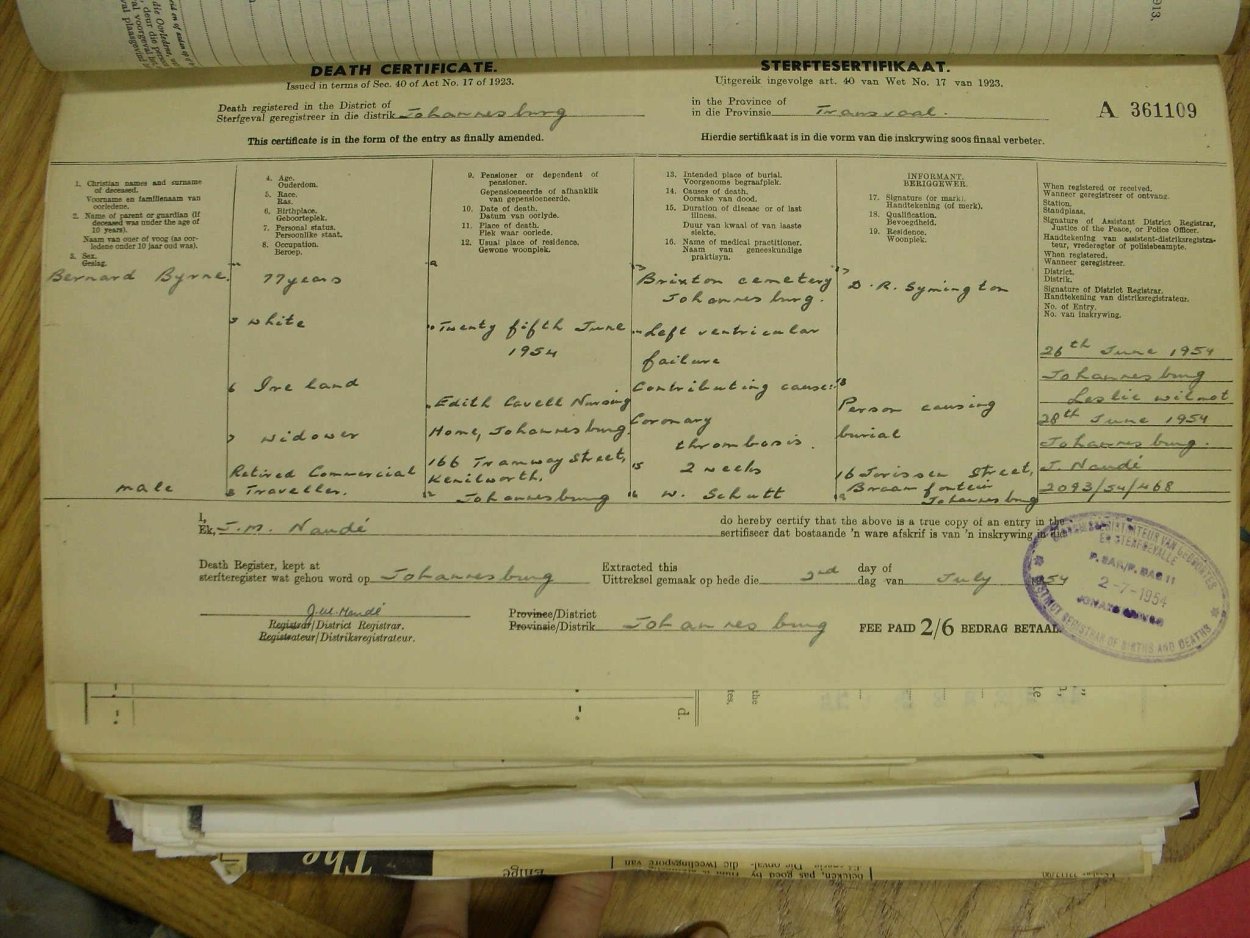 1913.
DEATH CERTIFICATE.
STERFTESERTIFIKAAT.
Issued in terms of Sec. 40 of Act No. 17 of 1923.
Uitgereik ingevolge art. 40 van Wet No. 17 van 1923.
Death registered in the District of
Sterfgeval geregistreer in die distrik Johannesburg
in the Province of
in die Provinsie Transvaal.
A 361109
This certificate is in the form of the entry as finally amended.
Hierdie sertifikaat is in die vorm van die inskrywing soos finaal verbeter.
1. Christian names and surname
of deceased.
Voornaam en familienaam van
oorledene.
2. Name of parent or guardian (if
deceased was under the age of
10 years).
Naam van ouer of voog (as oor-
ledene onder 10 jaar oud was).
3. Sex.
Geslag.
Bernard Byrne.
male
4. Age.
Ouderdom.
5. Race.
Ras.
6. Birthplace.
Geboorteplek.
7. Personal status.
Persoonlike staat.
8. Occupation.
Beroep.
4 77 years
5 white
6 Ireland
7 widower
Retired Commercial
8 Traveller.
9. Pensioner or dependent of
pensioner.
Gepensioeneerde of afhanklik
van gepensioeneerde.
10. Date of death.
Datum van oorlyde.
11. Place of death.
Plek waar oorlede.
12. Usual place of residence.
Gewone woonplek.
9
10 Twenty fifth June
1954
11 Edith Cavell Nursing
Home, Johannesburg.
166 Tramway Street,
Kenilworth,
12 Johannesburg
13. Intended place of burial.
Voorgenome begraafplek.
14. Causes of death.
Oorsake van dood.
15. Duration of disease or of last
illness.
Duur van kwaal of van laaste
siekte.
16. Name of medical practitioner.
Naam van geneeskundige
praktisyn.
13 Brixton cemetery
Johannesburg.
14 Left ventricular
failure
Contributing cause:
Coronary
thrombosis.
15 2 weeks
16 W. Schutt
INFORMANT.
BERIGGEWER.
17. Signature (or mark).
Handtekening (of merk).
18. Qualification.
Bevoegdheid.
19. Residence.
Woonplek.
17 D. R. Symington
18
Person causing
burial
16 Jorissen Street,
Braamfontein
19 Johannesburg
When registered or received.
Wanneer geregistreer of ontvang.
Station,
Standplaas.
Signature of Assistant District Registrar,
Justice of the Peace, or Police Officer.
Handtekening van assistent-distriksregistra-
teur, vrederegter of polisiebeampte.
When registered.
Wanneer geregistreer.
District.
Distrik.
Signature of District Registrar.
Handtekening van distriksregistrateur.
No. of Entry.
No. van inskrywing.
26th June 1954
Johannesburg
Leslie Wilmot
28th June 1954
Johannesburg.
J. Naudé
2093/54/468
I,
Ek, J. M. Naudé
do hereby certify that the above is a true copy of an entry in the
sertifiseer dat bostaande 'n ware afskrif is van 'n inskrywing in die
Death Register, kept at
sterfteregister wat gehou word op Johannesburg
Extracted this
Uittreksel gemaak op hede die 2nd
day of
dag van July 54
J. M. Naudé
Registrar/District Registrar.
Registrateur/Distriksregistrateur.
Province/District
Provinsie/Distrik Johannesburg
FEE PAID 2/6 BEDRAG BETAAL
P. BAG/P. SAK 11
2-7-1954
DISTRICT REGISTRAR OF BIRTHS AND DEATHS
d.
the
The
Enige